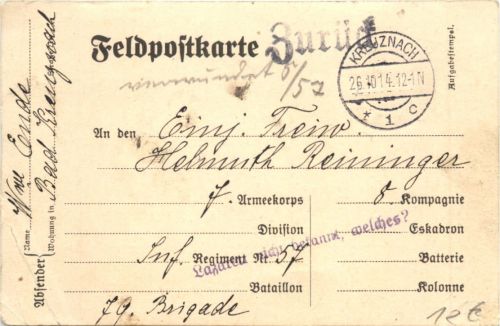 Feldpostkarte
Zurück
verwundet 6/57
KREUZNACH
26.10.14.12-1N
* 1 c
Aufgabestempel.
An den Einj. Freiw.
Helmuth Reininger
7. Armeekorps 8. Kompagnie
Division Eskadron
Inf. Regiment Nr. 57 Batterie
Bataillon Kolonne
79. Brigade
Lazarett nicht bekannt, welches?
Absender
Name Ende
Wohnung in Bad Kreuznach
12€